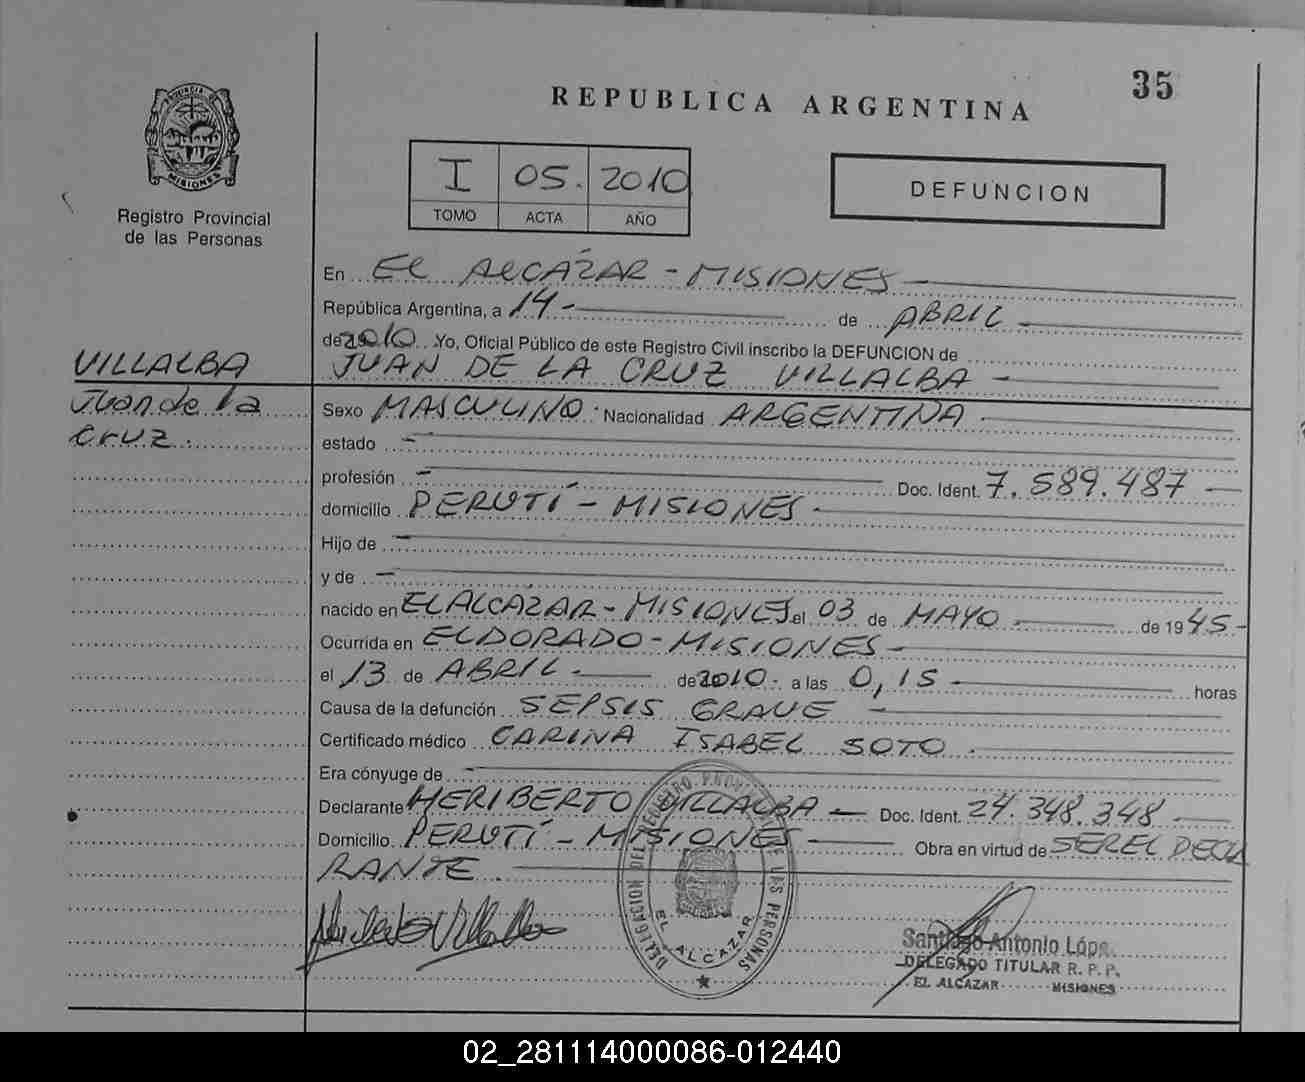 35
REPUBLICA ARGENTINA
PROVINCIA DE MISIONES
Registro Provincial
de las Personas
I 05. 2010
TOMO ACTA AÑO
DEFUNCION
En EL ALCÁZAR - MISIONES
República Argentina, a 14 - de ABRIL
de 2010 Yo, Oficial Público de este Registro Civil inscribo la DEFUNCION de
VILLALBA
JUAN DE LA CRUZ VILLALBA -
Juan de la
Cruz.
Sexo MASCULINO. Nacionalidad ARGENTINA
estado -
profesión - Doc. Ident. 7.589.487 -
domicilio PERUTÍ - MISIONES -
Hijo de -
y de -
nacido en EL ALCAZAR - MISIONES el 03 de MAYO de 1945 -
Ocurrida en ELDORADO - MISIONES -
el 13 de ABRIL - de 2010 - a las 0,15 horas
Causa de la defunción SEPSIS GRAVE -
Certificado médico CARINA ISABEL SOTO.
Era cónyuge de -
Declarante HERIBERTO VILLALBA - Doc. Ident. 24.348.348 -
Domicilio PERUTÍ - MISIONES Obra en virtud de SER EL DECLA
RANTE.
DELEGACION DEL REGISTRO PROVINCIAL DE LAS PERSONAS
EL ALCAZAR
Santiago Antonio Lópe
DELEGADO TITULAR R. P. P.
EL ALCAZAR MISIONES
02_281114000086-012440